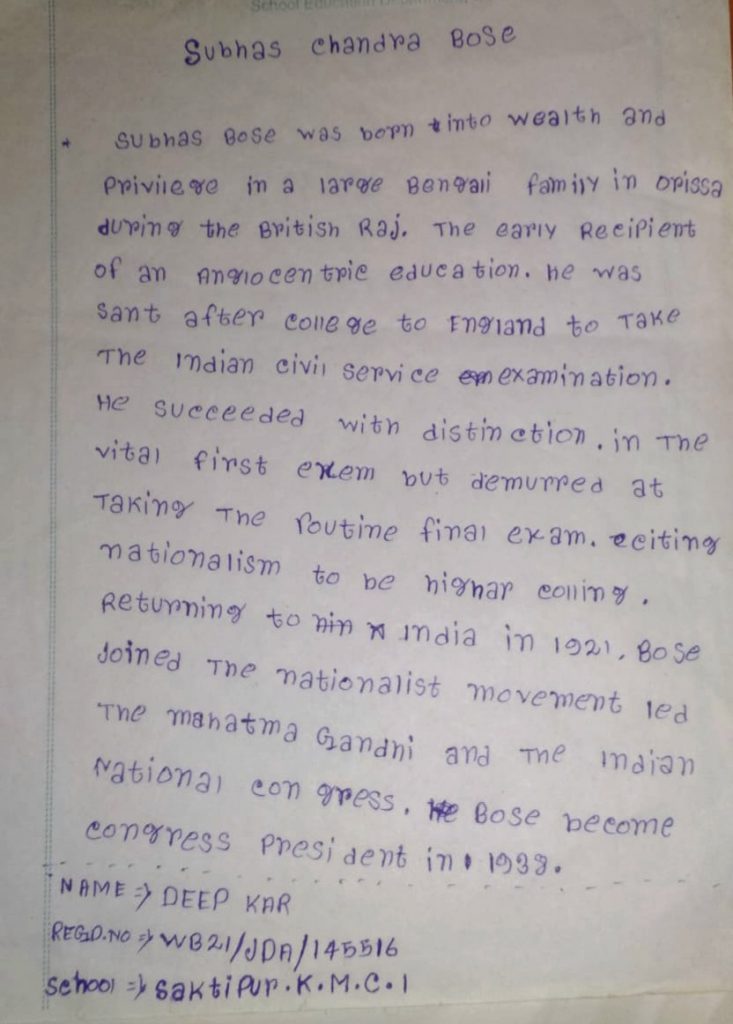 Subhas Chandra Bose
* Subhas Bose was born into wealth and
Privilege in a large Bengali family in Orissa
during the British Raj. The early Recipient
of an Anglocentric education. he was
Sant after college to England to Take
The Indian civil service examination.
He succeeded with distinction. in The
vital first exem but demurred at
Taking The routine final exam. eciting
nationalism to be highar colling.
Returning to India in 1921, Bose
Joined The nationalist movement led
The mahatma Gandhi and The Indian
National congress. Bose become
congress President in 1938.
NAME => DEEP KAR
REGD.NO => WB21/JDA/145516
School => Saktipur.K.M.C.I